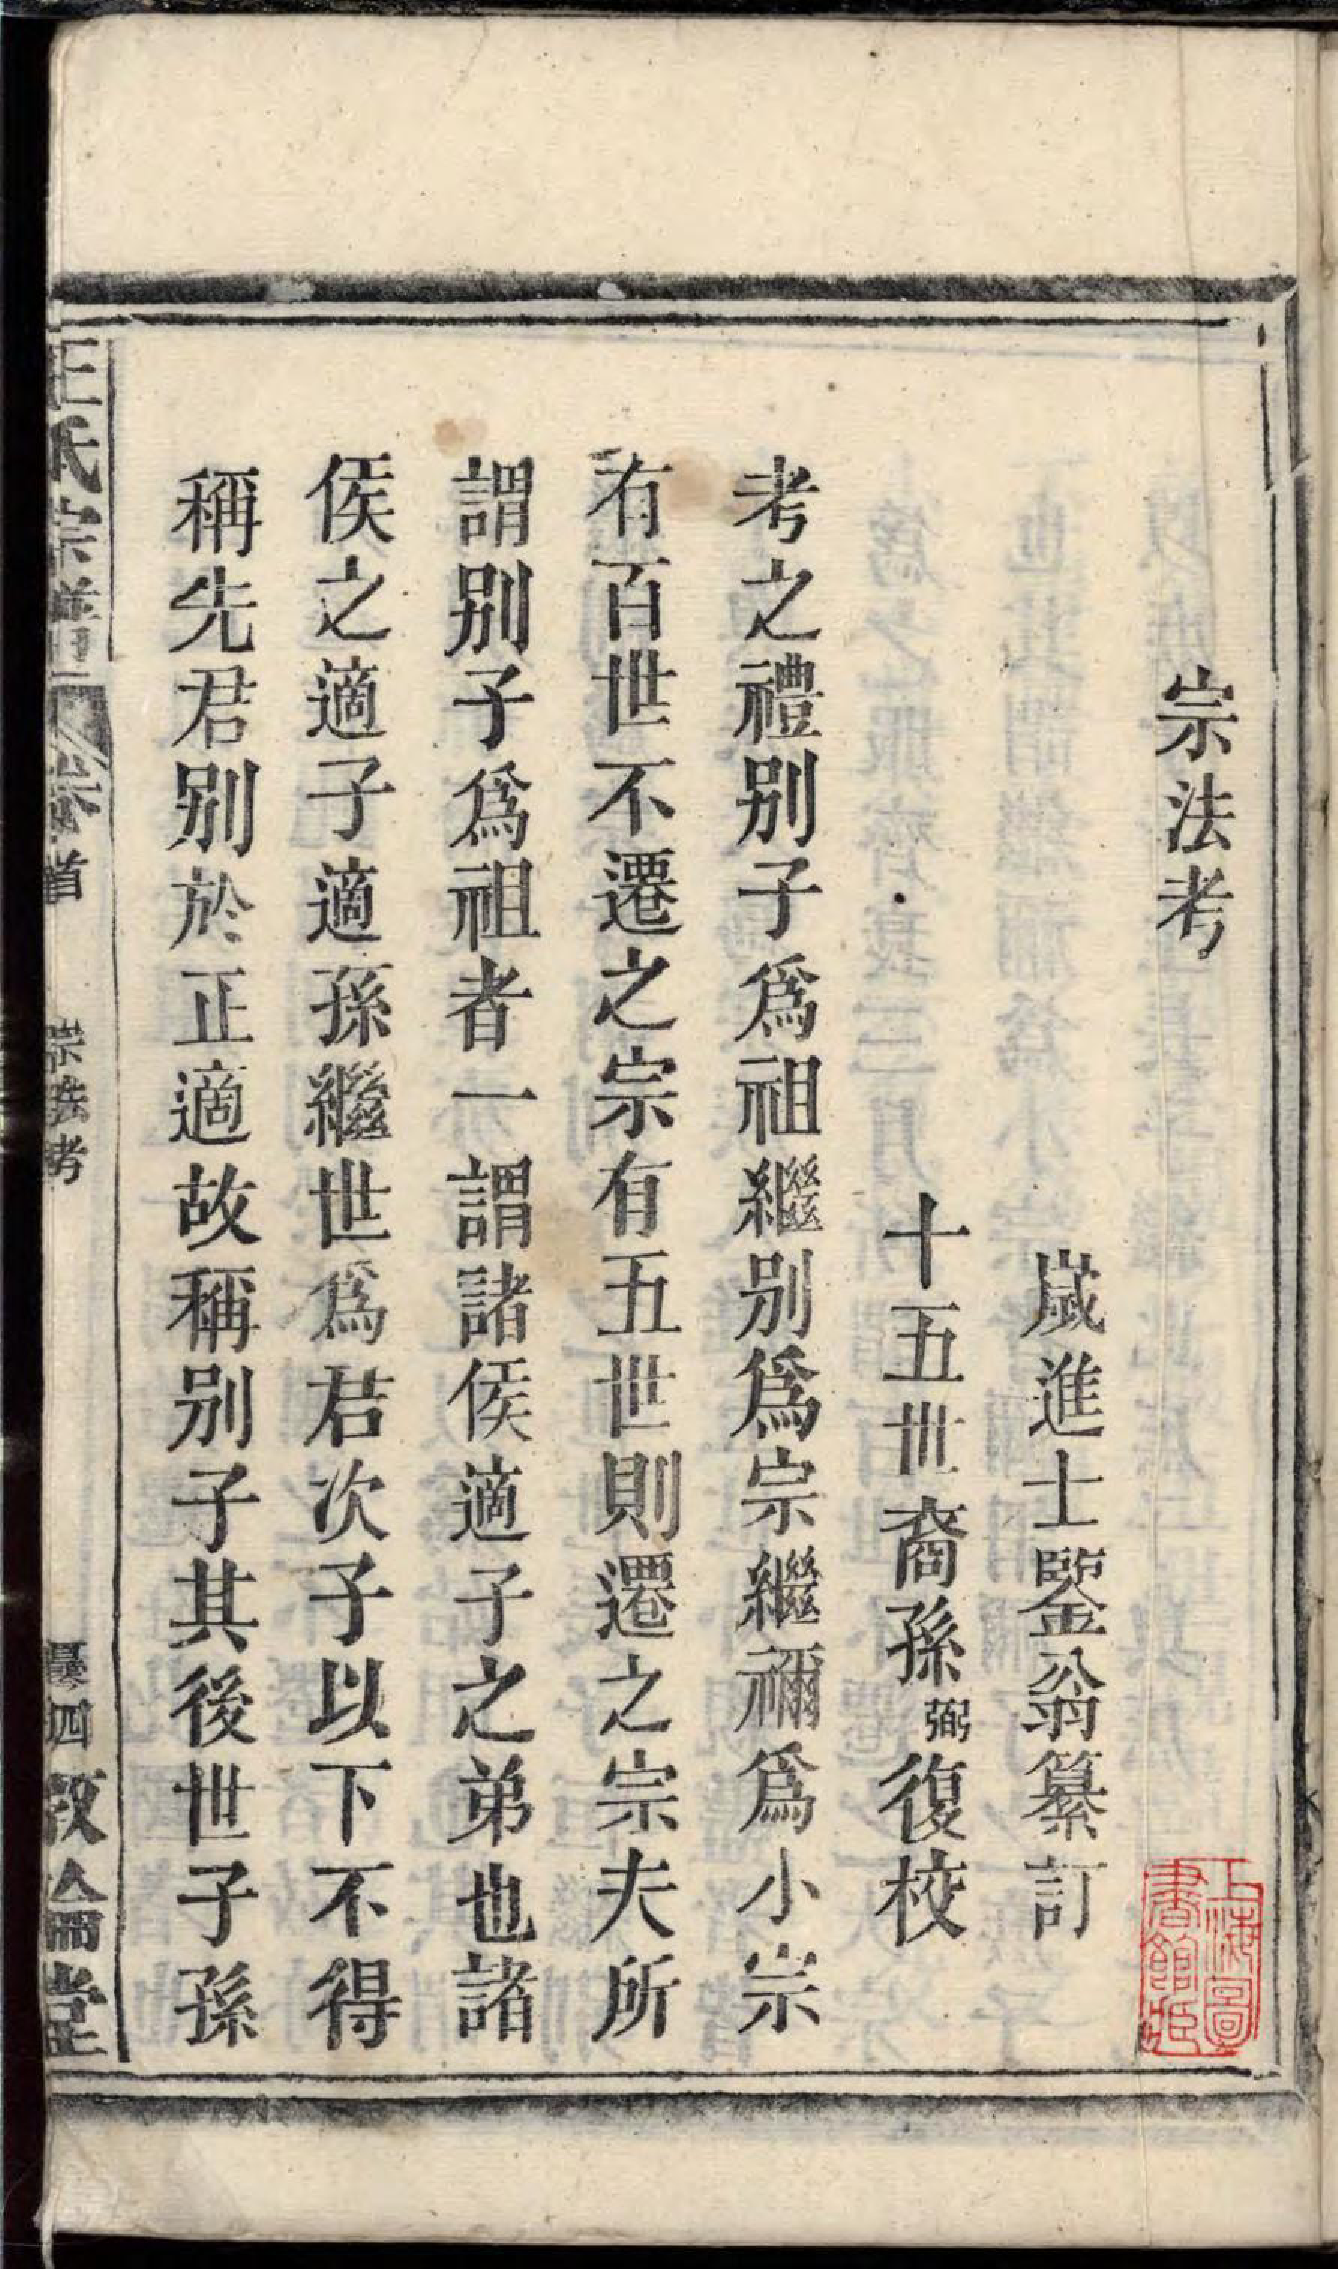 宗法考
嵗進士鑒翁纂訂
十五世裔孫弼復校
考之禮别子爲祖繼别爲宗繼禰爲小宗
有百世不遷之宗有五世則遷之宗夫所
謂别子爲祖者一謂諸侯適子之弟也諸
侯之適子適孫繼世爲君次子以下不得
稱先君别於正適故稱别子其後世子孫
王氏宗譜
卷首
宗法考
四
敦倫堂
上海圖
書館藏